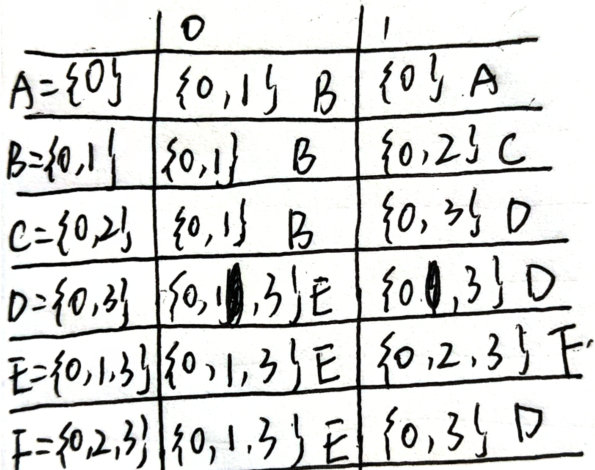 0 1
A={0} {0,1} B {0} A
B={0,1} {0,1} B {0,2} C
C={0,2} {0,1} B {0,3} D
D={0,3} {0,1,3} E {0,3} D
E={0,1,3} {0,1,3} E {0,2,3} F
F={0,2,3} {0,1,3} E {0,3} D